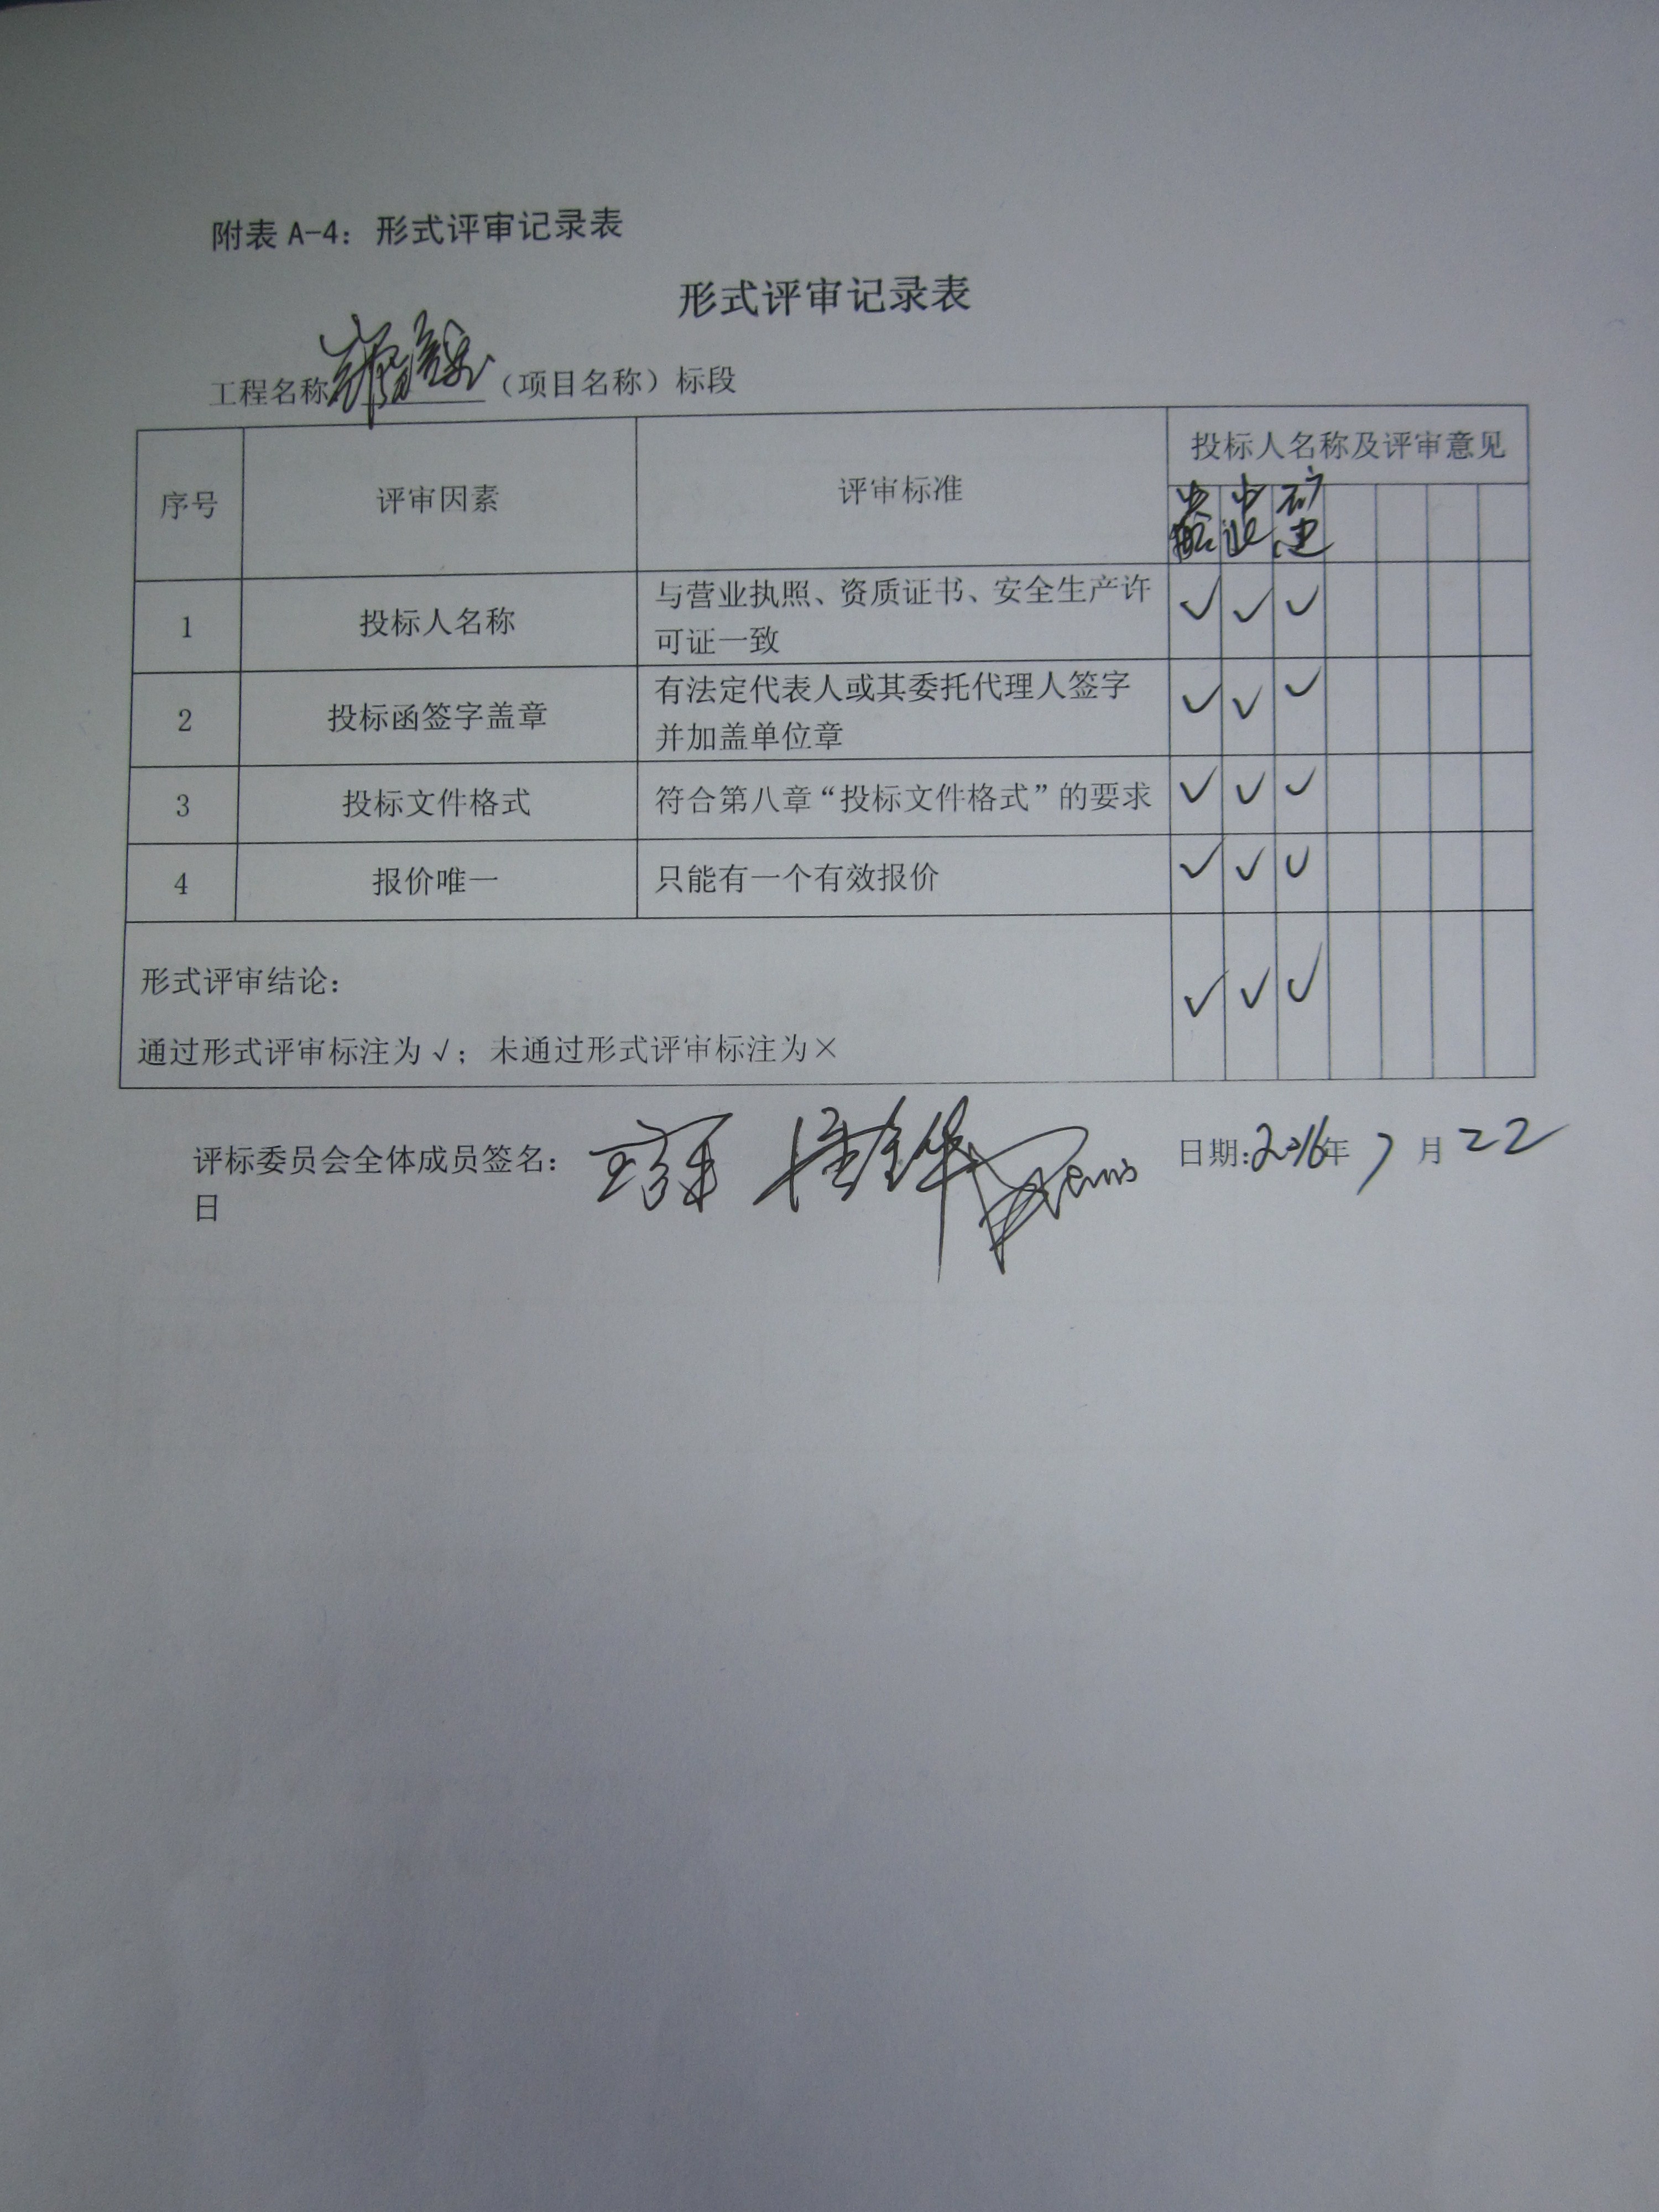 附表 A-4：形式评审记录表
形式评审记录表
工程名称 （项目名称）标段
序号 评审因素 评审标准 投标人名称及评审意见
中 矿建
1 投标人名称 与营业执照、资质证书、安全生产许
可证一致 ✓ ✓ ✓
2 投标函签字盖章 有法定代表人或其委托代理人签字
并加盖单位章 ✓ ✓ ✓
3 投标文件格式 符合第八章“投标文件格式”的要求 ✓ ✓ ✓
4 报价唯一 只能有一个有效报价 ✓ ✓ ✓
形式评审结论： ✓ ✓ ✓
通过形式评审标注为√；未通过形式评审标注为×
评标委员会全体成员签名： 日期：2016年 7 月 22
日